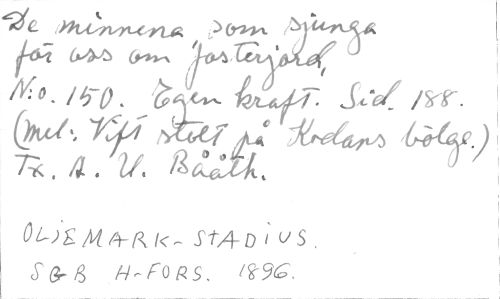 De minnena, som sjunga
för oss om fosterjord,
N:o. 150. Egen kraft. Sid. 188.
(Mel: Vift stolt på Kodans bölge.)
Tx. A. U. Bååth.
OLJEMARK-STADIUS.
SGB H-FORS. 1896.